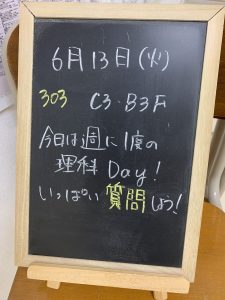 6月13日(火)
303 C3·B3F
今日は週に1度の
理科Day!
いっぱい質問しよう!